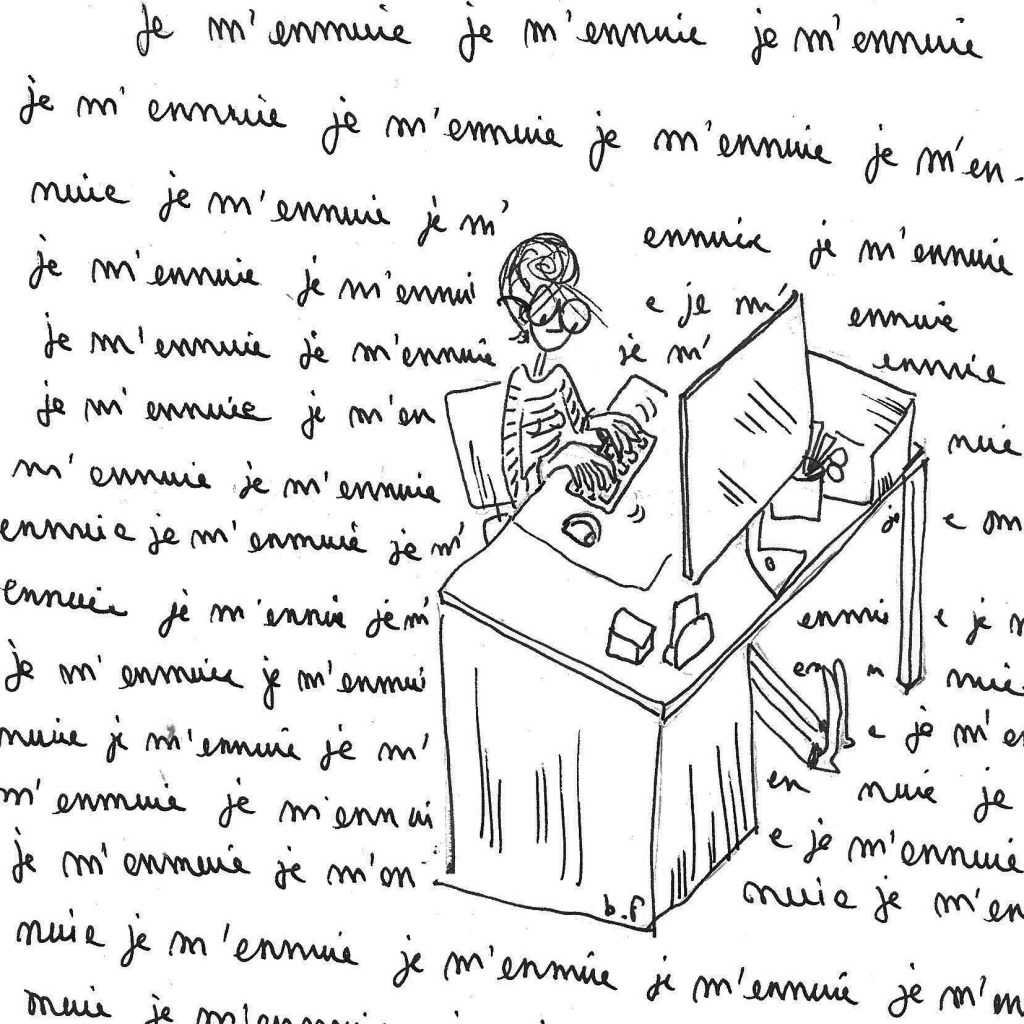 je m'ennuie je m'ennuie je m'ennuie
je m'ennuie je m'ennuie je m'ennuie je m'en-
nuie je m'ennuie je m' ennuie je m'ennuie
je m'ennuie je m'ennui e je m' ennuie
je m'ennuie je m'ennuie je m' ennuie
je m'ennuie je m'en nuie
m'ennuie je m'ennuie
ennuie je m'ennuie je m' je e m
ennuie je m'ennuie je m' ennui e je m
je m'ennuie je m'ennui en n nuie
nuie je m'ennuie je m' e je m'en
m'ennuie je m'ennui en nuie je
je m'ennuie je m'en e je m'ennuie
b.f nuie je m'en
nuie je m'ennuie je m'ennuie je m'ennuie je m'en
nuie je m'ennuie